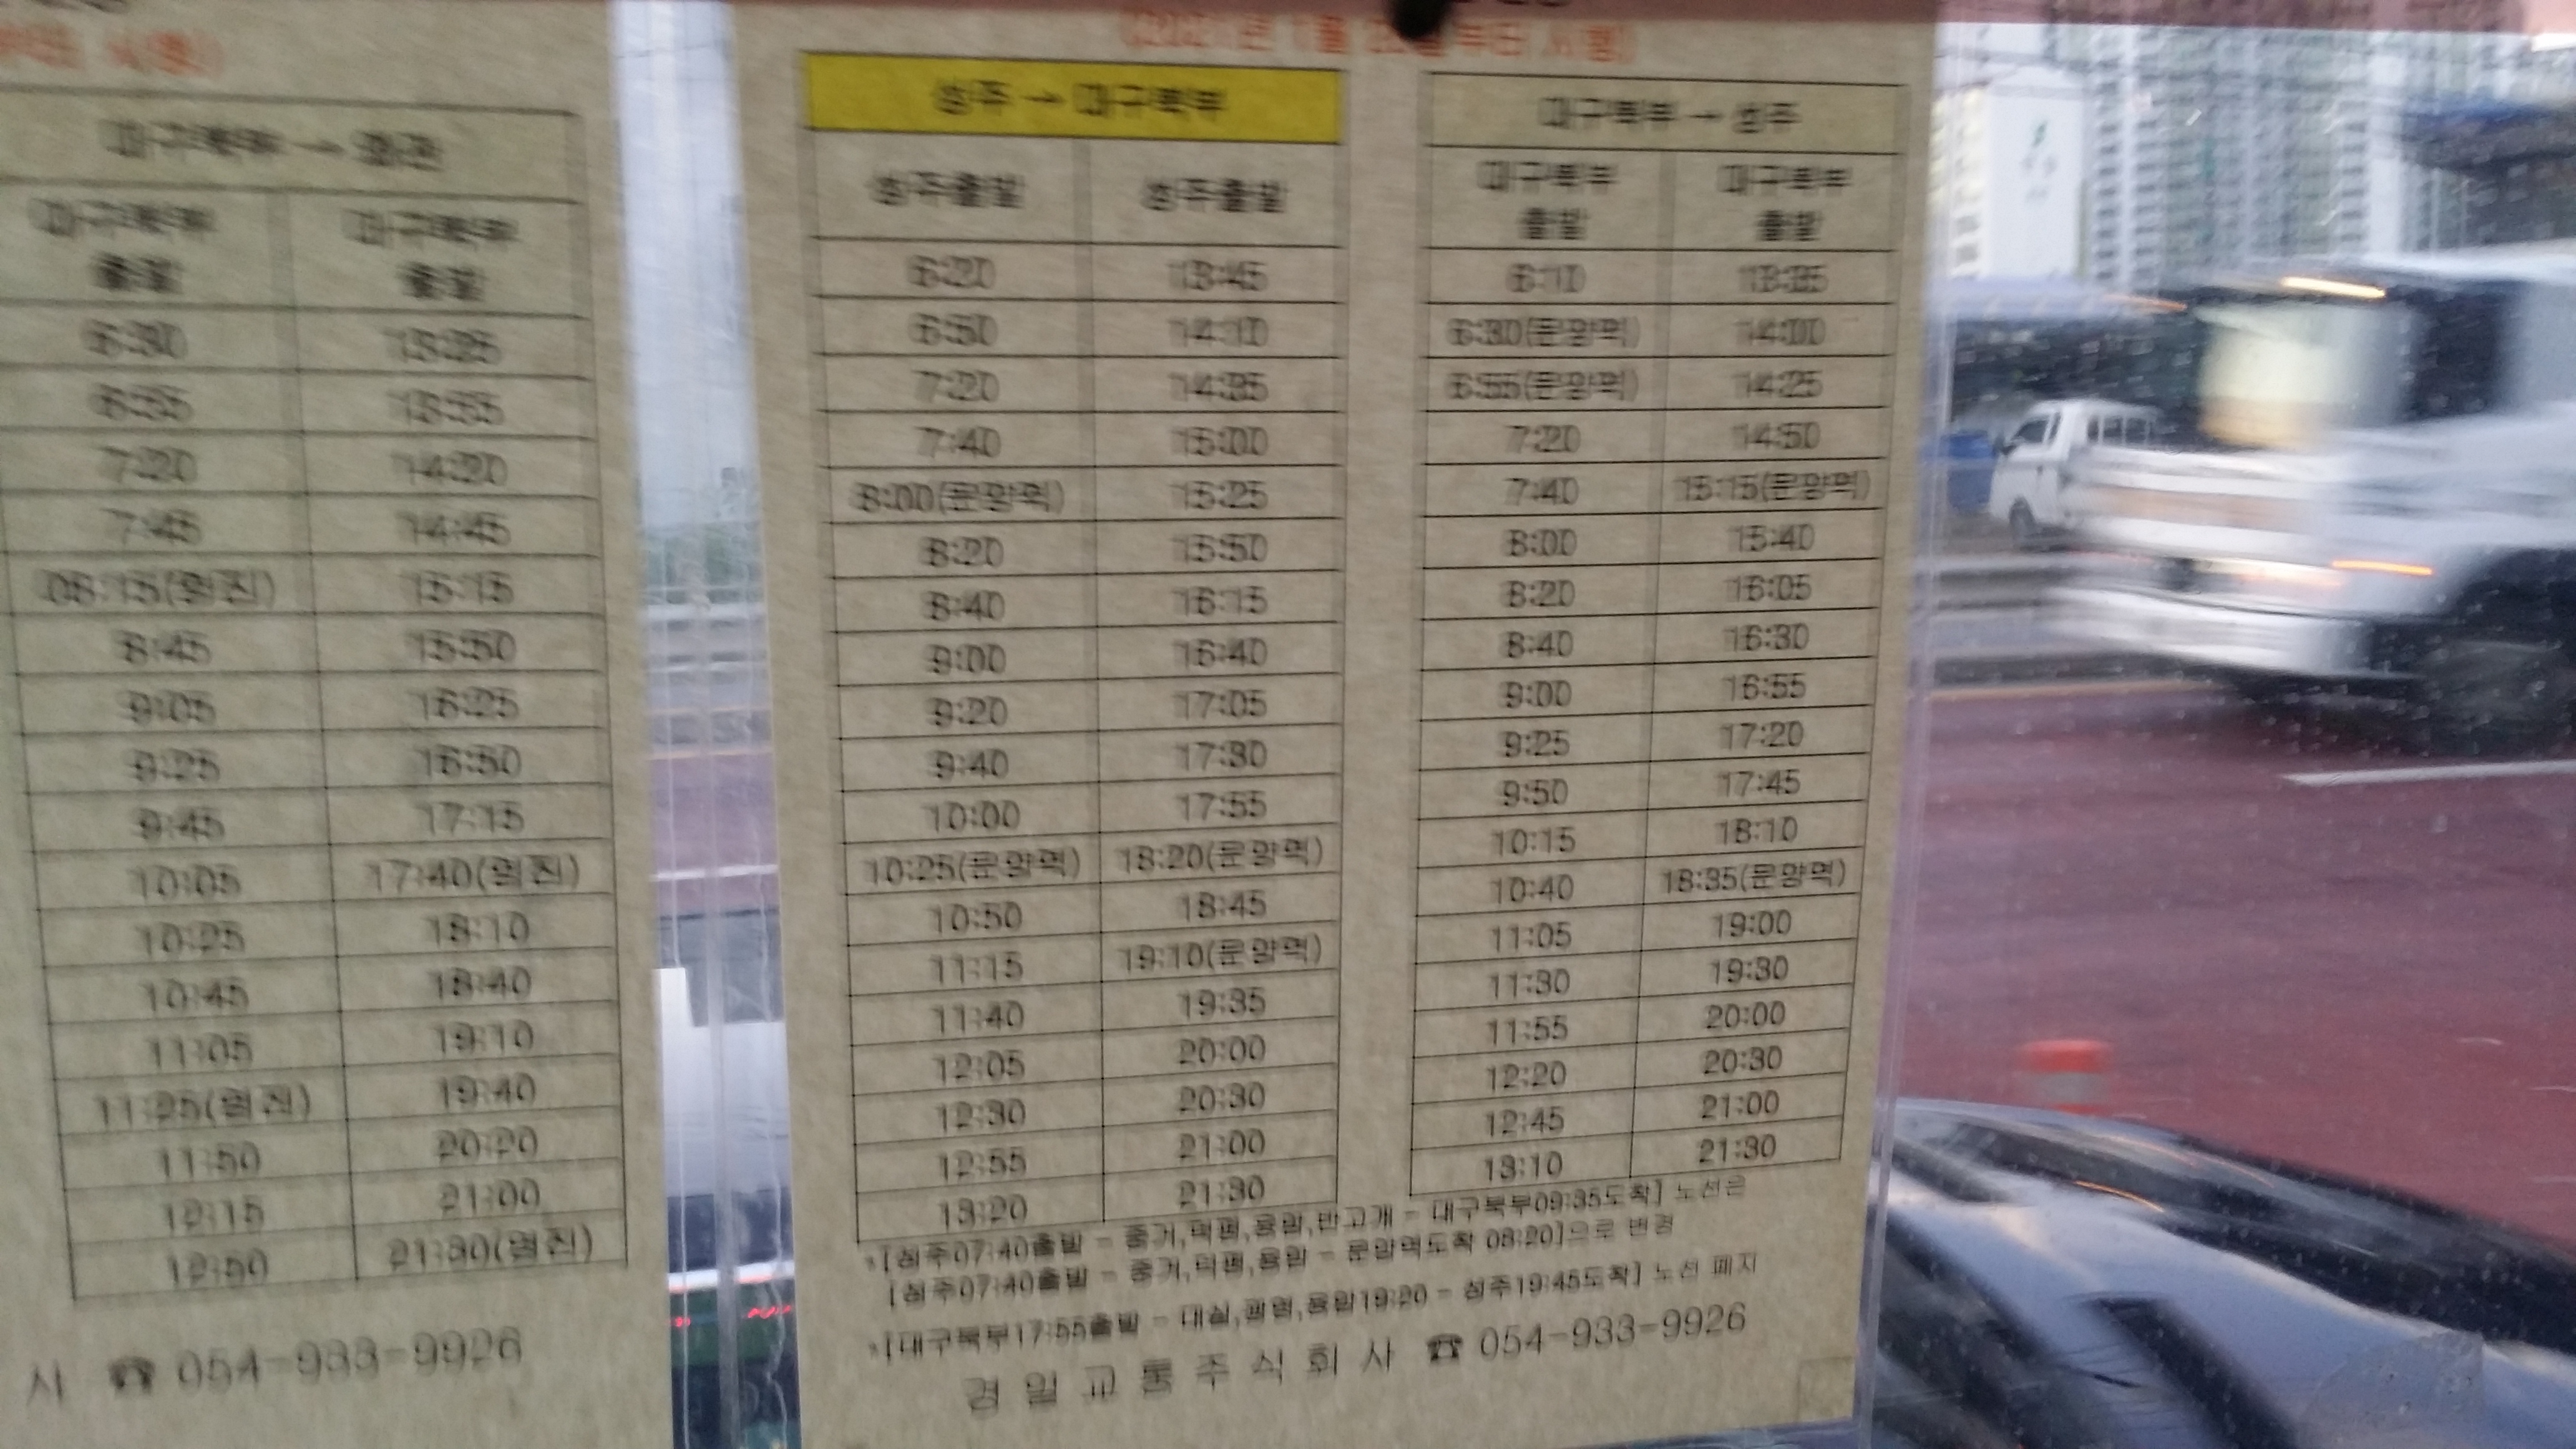 대구북부 → 왜관
대구북부 출발 대구북부 출발
6:30 13:25
6:55 13:55
7:20 14:20
7:45 14:45
08:15(영진) 15:15
8:45 15:50
9:05 16:25
9:25 16:50
9:45 17:15
10:05 17:40(영진)
10:25 18:10
10:45 18:40
11:05 19:10
11:25(영진) 19:40
11:50 20:20
12:15 21:00
12:50 21:30(영진)
사 ☎ 054-933-9926
성주 → 대구북부
성주출발 성주출발
6:20 13:45
6:50 14:10
7:20 14:35
7:40 15:00
8:00(문양역) 15:25
8:20 15:50
8:40 16:15
9:00 16:40
9:20 17:05
9:40 17:30
10:00 17:55
10:25(문양역) 18:20(문양역)
10:50 18:45
11:15 19:10(문양역)
11:40 19:35
12:05 20:00
12:30 20:30
12:55 21:00
13:20 21:30
대구북부 → 성주
대구북부 출발 대구북부 출발
6:10 13:35
6:30(문양역) 14:00
6:55(문양역) 14:25
7:20 14:50
7:40 15:15(문양역)
8:00 15:40
8:20 16:05
8:40 16:30
9:00 16:55
9:25 17:20
9:50 17:45
10:15 18:10
10:40 18:35(문양역)
11:05 19:00
11:30 19:30
11:55 20:00
12:20 20:30
12:45 21:00
13:10 21:30
*[성주07:40출발 - 중거,덕평,용암,반고개 - 대구북부09:35도착] 노선은
[성주07:40출발 - 중거,덕평,용암 - 문양역도착 08:20]으로 변경
*[대구북부17:55출발 - 대실,광영,용암19:20 - 성주19:45도착] 노선 폐지
경일교통주식회사 ☎ 054-933-9926